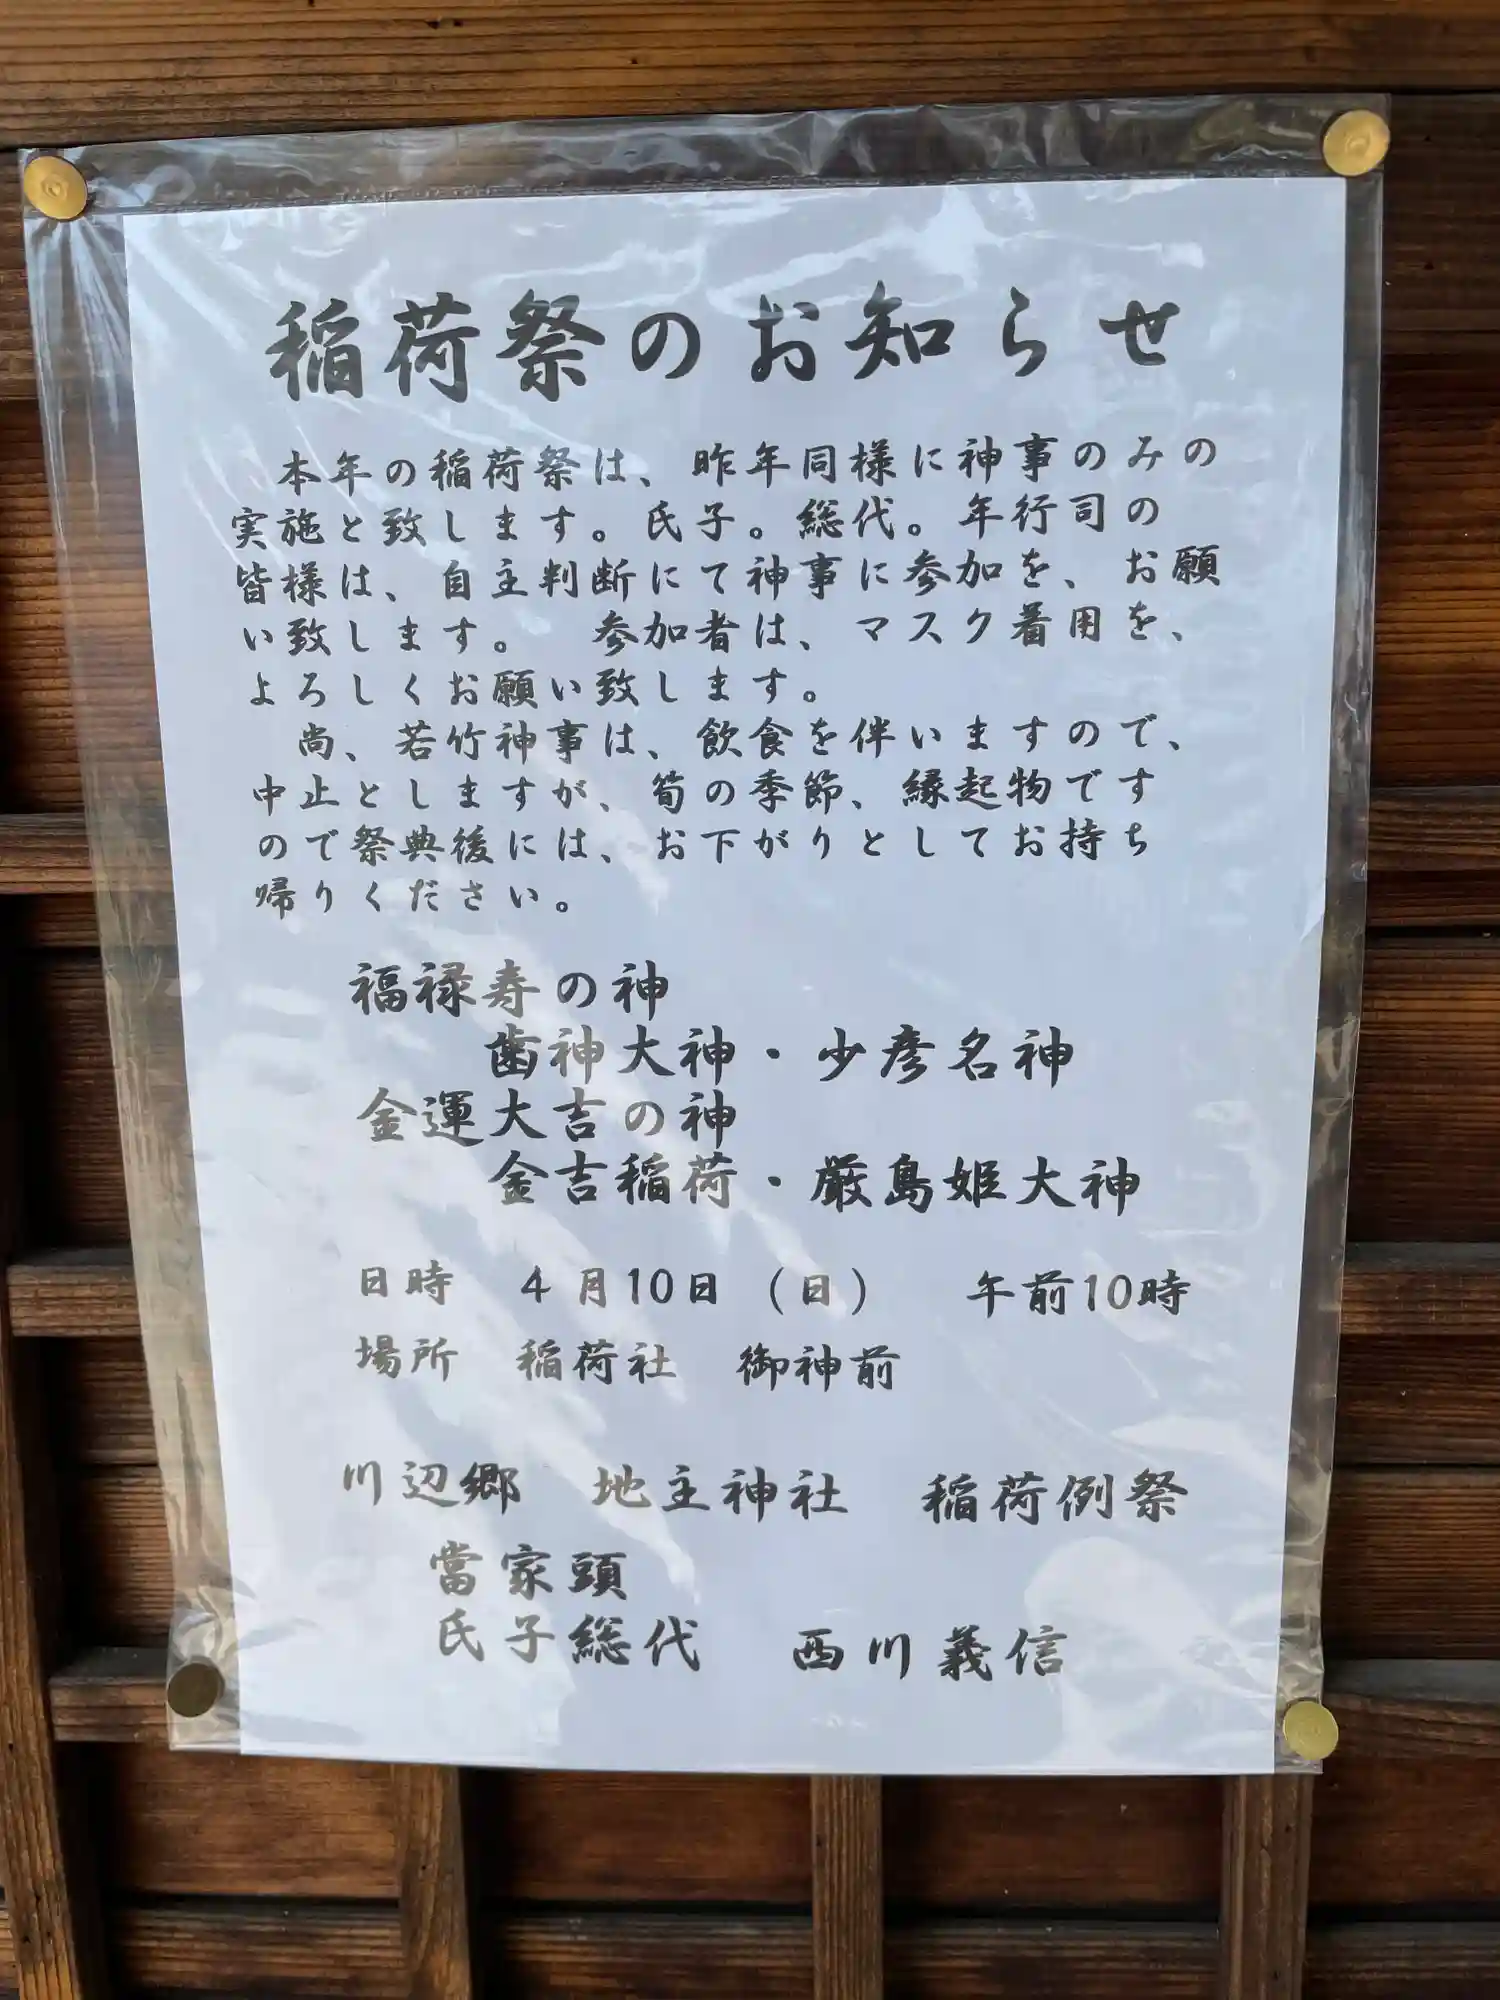 稲荷祭のお知らせ
本年の稲荷祭は、昨年同様に神事のみの
実施と致します。氏子。総代。年行司の
皆様は、自主判断にて神事に参加を、お願
い致します。　参加者は、マスク着用を、
よろしくお願い致します。
尚、若竹神事は、飲食を伴いますので、
中止としますが、筍の季節、縁起物です
ので祭典後には、お下がりとしてお持ち
帰りください。
福禄寿の神
歯神大神・少彦名神
金運大吉の神
金吉稲荷・厳島姫大神
日時　４月10日（日）　午前10時
場所　稲荷社　御神前
川辺郷　地主神社　稲荷例祭
當家頭
氏子総代　西川義信